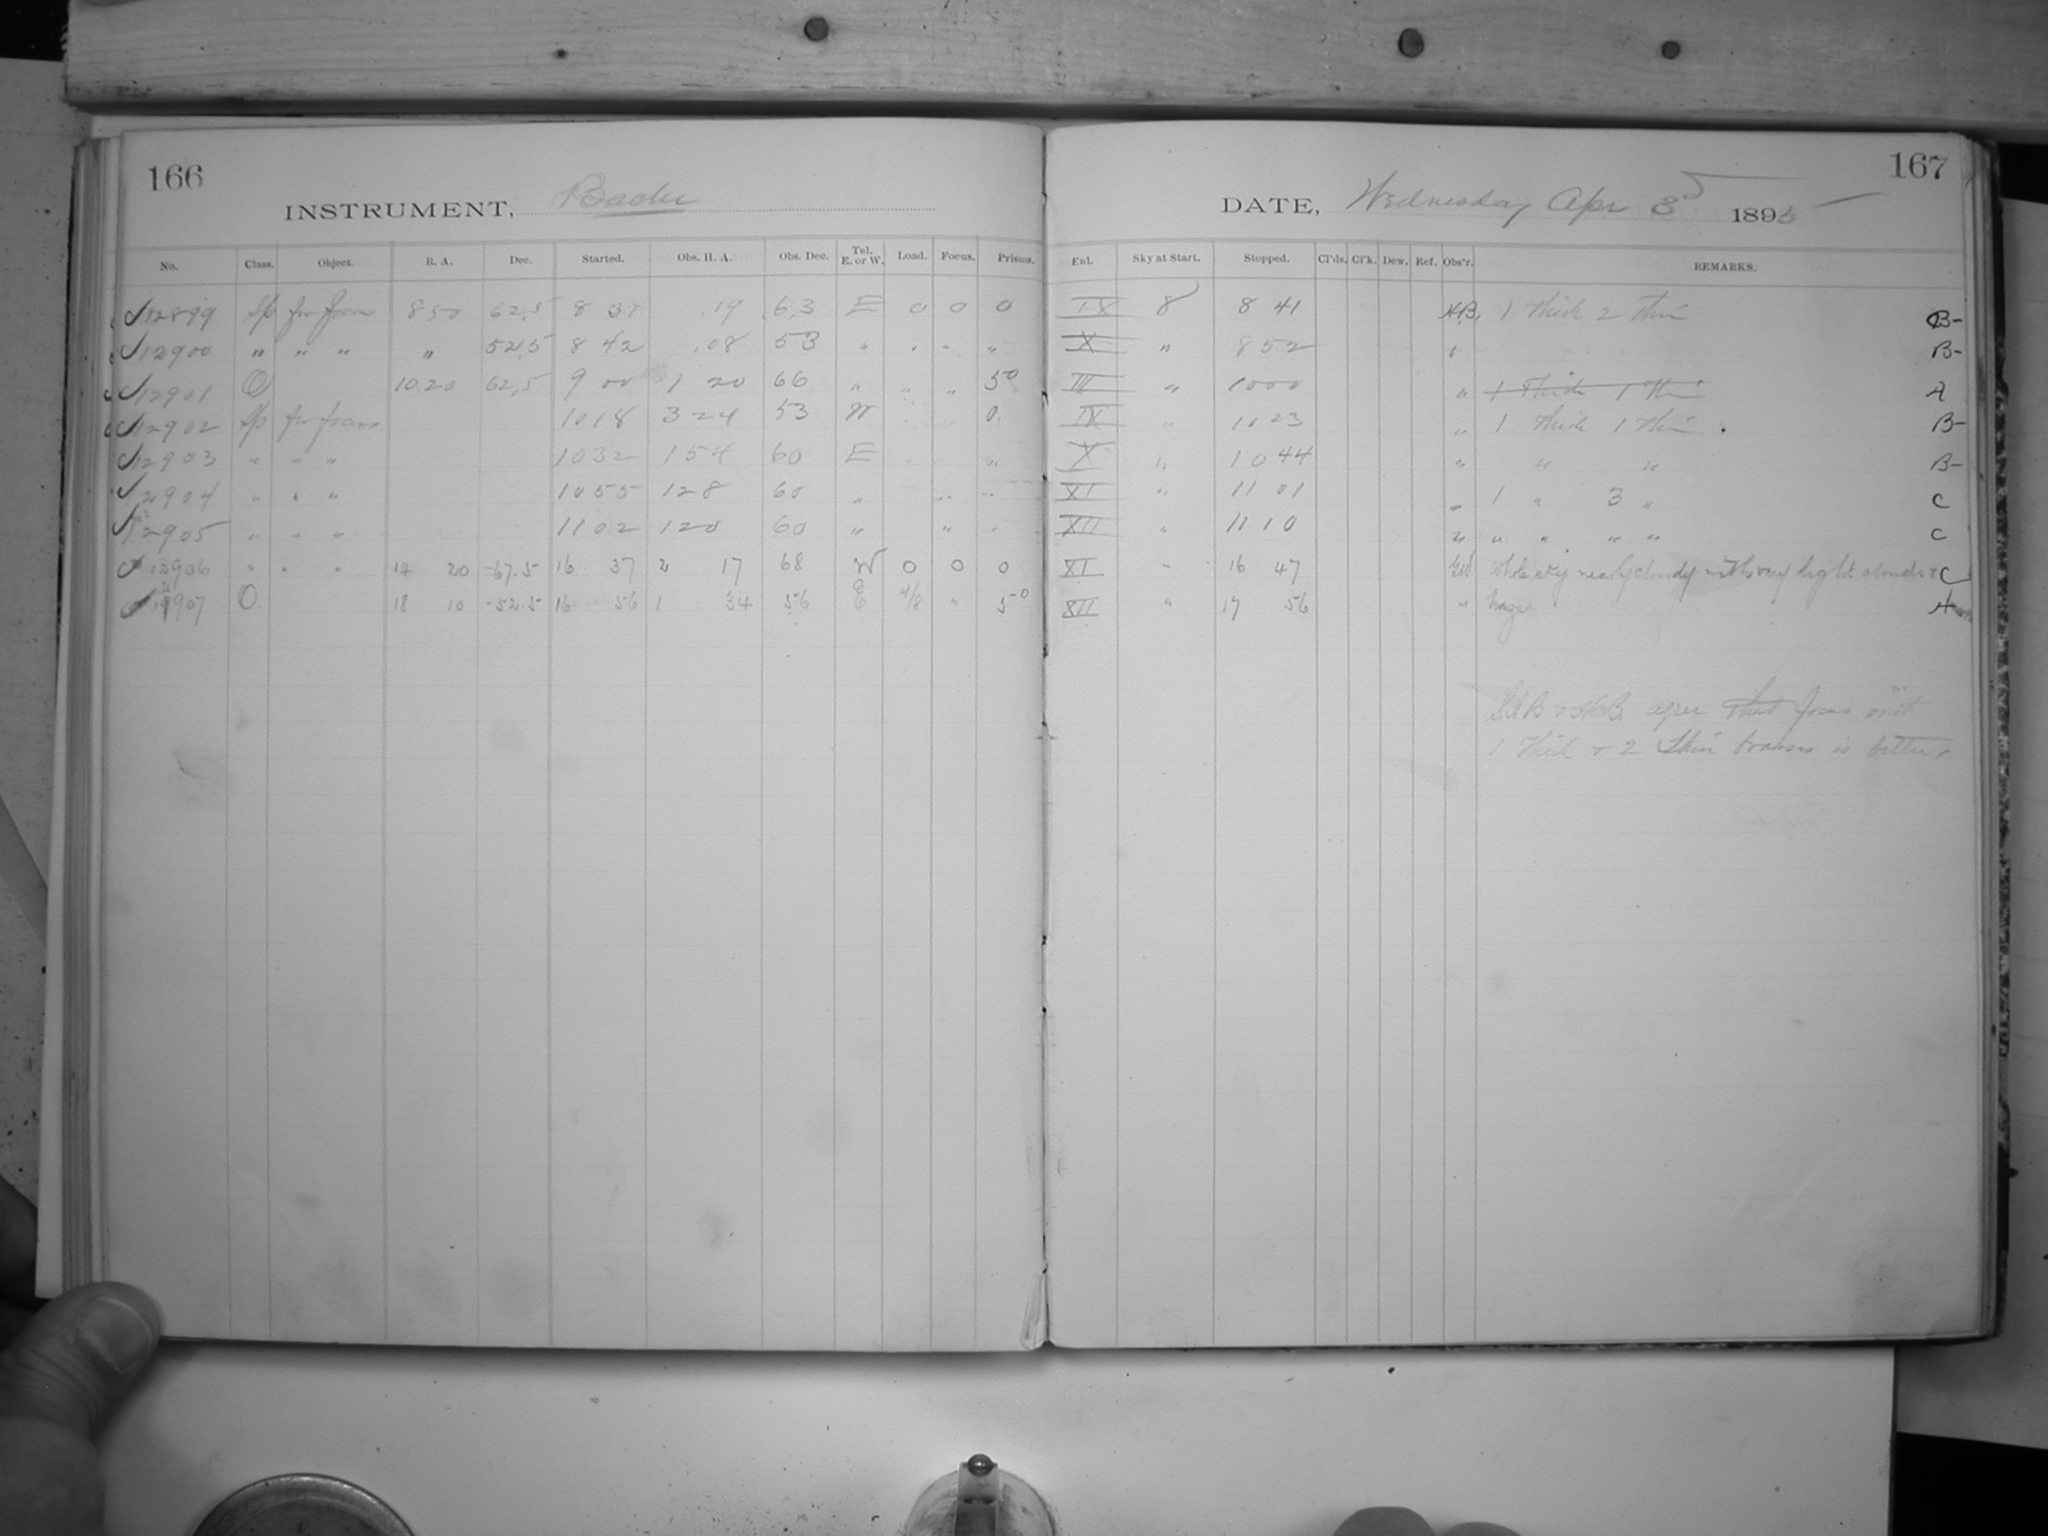 166
INSTRUMENT, Bache
No. Class. Object. R. A. Dec. Started. Obs. H. A. Obs. Dec. Tel. E. or W. Load. Focus. Prisms.
12899 Sp for focus 8 50 62.5 8 37 .19 63 E 0 0 0
12900 " " " " 52.5 8 42 .08 53 " " " "
12901 O 10 20 62.5 9 00 1 20 66 " " " 5º
12902 Sp for focus 10 18 3 24 53 W 0
12903 " " " 10 32 1 54 60 E "
12904 " " " 10 55 1 28 60 " " "
12905 " " " 11 02 1 20 60 " " "
12906 " " " 14 20 -67.5 16 37 2 17 68 W 0 0 0
12907 O. 18 10 -52.5 16 56 1 34 56 E 4/8 " 5º
167
DATE, Wednesday Apr 3d 1895
Enl. Sky at Start. Stopped. Cl'ds. Cl'k. Dew. Ref. Obs'r. REMARKS.
IX 8 8 41 1 thick 2 thin B-
X " 8 52 " B-
III " 10 00 " 1 Thick 1 Thin A
IX " 10 23 " 1 thick 1 thin . B-
X " 10 44 " " " B-
XI " 11 01 " 1 " 3 " C
XII " 11 10 " " " " " C
XI " 16 47 whole sky nearly cloudy with very light clouds + C
XII " 17 56 " haze A
agree that focus with
1 thick + 2 thin is better.